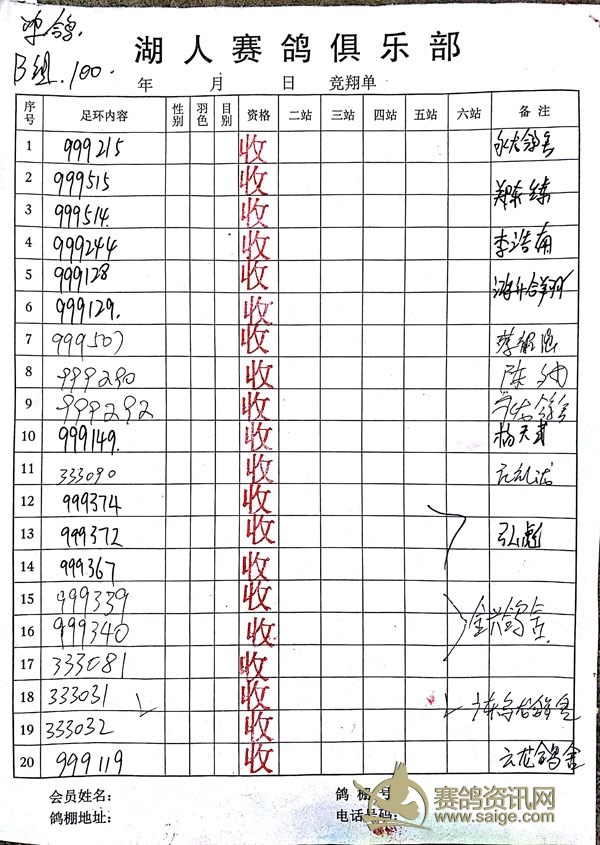 单鸽.
湖人赛鸽俱乐部
B组.100.
年 月 日 竞翔单
序号 足环内容 性别 羽色 目别 资格 二站 三站 四站 五站 六站 备注
1 999215 收
2 999515 收
3 999514. 收
4 999244 收 李浩南
5 999128 收
6 999129. 收
7 999507 收
8 999290 收 陈
9 999292 收
10 999149. 收 杨天武
11 333090 收
12 999374 收
13 999372 收 弘彪
14 999367 收
15 999339 收
16 999340 收
17 333081 收
18 333031 收
19 333032 收
20 999119 收 云龙鸽舍
会员姓名: 鸽棚号
鸽棚地址: 电话号码:
赛鸽资讯网
www.saige.com